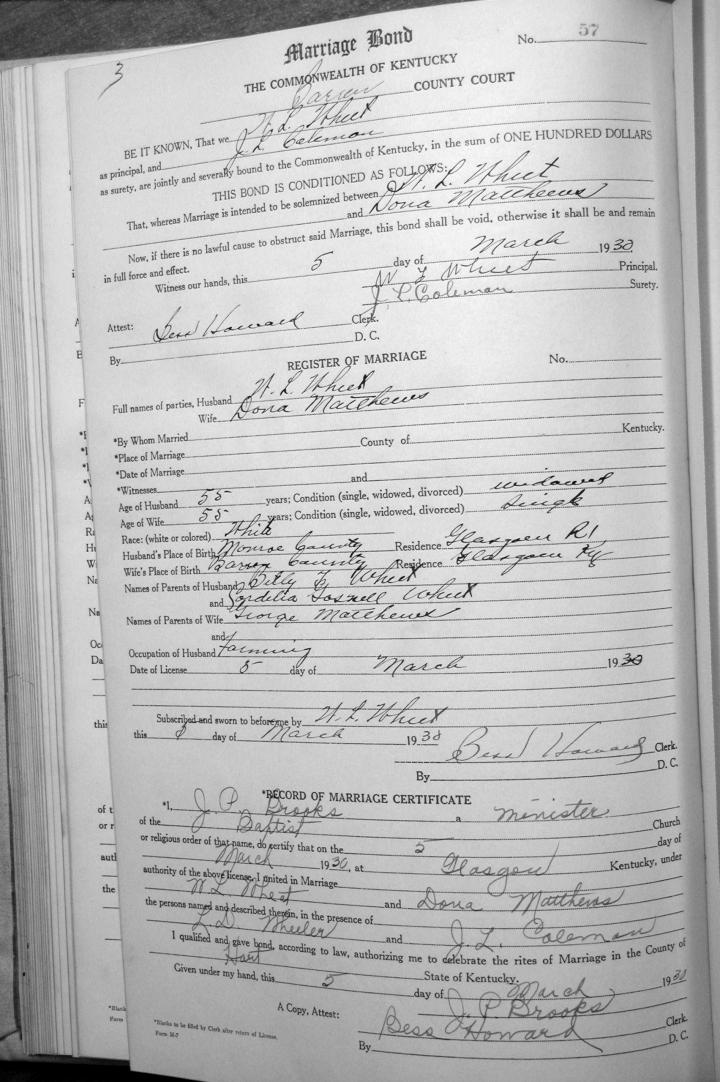 3
Marriage Bond
No. 57
THE COMMONWEALTH OF KENTUCKY
Barren COUNTY COURT
BE IT KNOWN, That we W. L. Wheet
as principal, and J. L. Coleman
as surety, are jointly and severally bound to the Commonwealth of Kentucky, in the sum of ONE HUNDRED DOLLARS
THIS BOND IS CONDITIONED AS FOLLOWS:
That, whereas Marriage is intended to be solemnized between W. L. Wheet
and Dona Matthews
Now, if there is no lawful cause to obstruct said Marriage, this bond shall be void, otherwise it shall be and remain
in full force and effect.
Witness our hands, this 5 day of March 1930.
W L Wheet Principal.
J. L. Coleman Surety.
Attest: Bess Howard Clerk.
By D. C.
REGISTER OF MARRIAGE
No.
Full names of parties, Husband W. L. Wheet
Wife Dona Matthews
*By Whom Married
*Place of Marriage County of Kentucky.
*Date of Marriage
*Witnesses and
Age of Husband 55 years; Condition (single, widowed, divorced) widowed
Age of Wife 55 years; Condition (single, widowed, divorced) single
Race: (white or colored) White
Husband's Place of Birth Monroe County Residence Glasgow R1
Wife's Place of Birth Barren County Residence Glasgow Ky
Names of Parents of Husband Billy F. Wheet
and Cordelia Gosnell Wheet
Names of Parents of Wife George Matthews
and
Occupation of Husband Farming
Date of License 5 day of March 1930
Subscribed and sworn to before me by W. L. Wheet
this 5 day of March 1930
Bess Howard Clerk.
By D. C.
*RECORD OF MARRIAGE CERTIFICATE
*I, J. P. Brooks a minister
of the Baptist Church
or religious order of that name, do certify that on the 5 day of
March 1930, at Glasgow Kentucky, under
authority of the above license, I united in Marriage
W L Wheet and Dona Matthews
the persons named and described therein, in the presence of
L. D. Wheeler and J. L. Coleman
I qualified and gave bond, according to law, authorizing me to celebrate the rites of Marriage in the County of
Hart State of Kentucky.
Given under my hand, this 5 day of March 1930
J. P. Brooks
A Copy, Attest: Bess Howard Clerk.
By D. C.
*Blanks to be filled by Clerk after return of License.
Form M-7